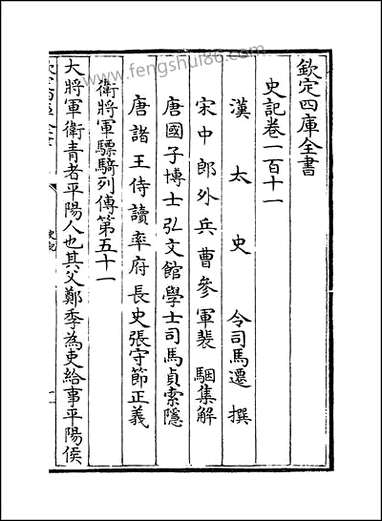 欽定四庫全書
史記卷一百十一
漢太史令司馬遷撰
宋中郎外兵曹參軍裴駰集解
唐國子博士弘文館學士司馬貞索隱
唐諸王侍讀率府長史張守節正義
衛將軍驃騎列傳第五十一
大將軍衛青者平陽人也其父鄭季為吏給事平陽侯
www.fengshui86.com